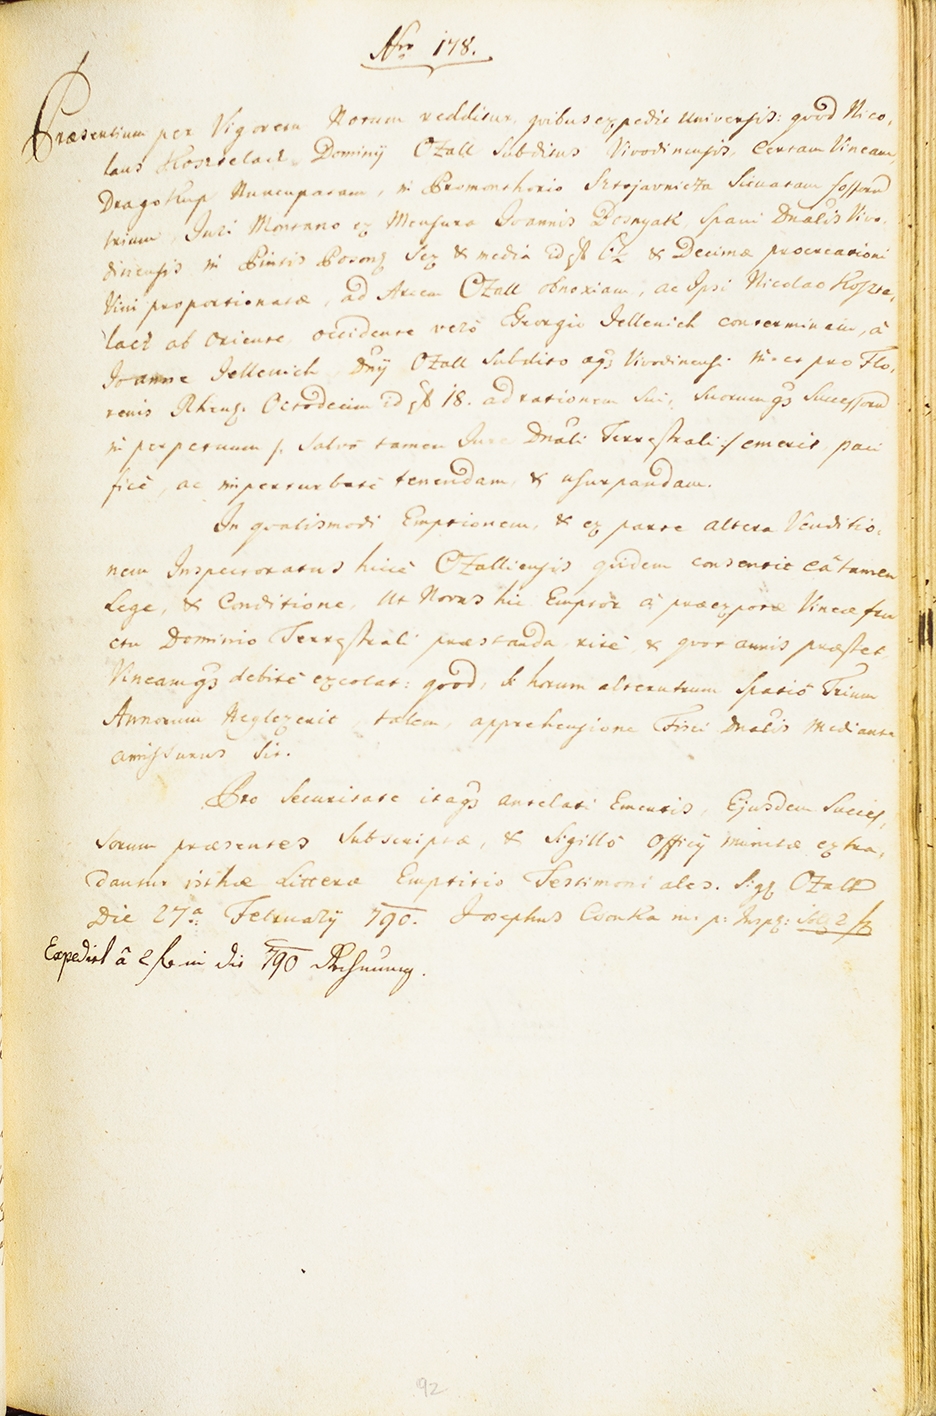 Nro 178.
Præsentium per Vigorem Notum redditur, quibus expedit universis: quod Nico,
laus Kosztelacz Dominij Ozall Subditus Vivodinensis, Certam Vineam,
Drago Kup Nuncupatam, in Promonthorio Sztrajavnicza Situatam fossorum
trium, Juri Montano ex Mensura Joannis Desnyak, Spani Dnalis Vivo,
dinensis in Pintis Poson. Sex & media id est 6½ & Decimæ procreationi
Vini proportionatæ, ad Arcem Ozall obnoxiam, ac Ipsi Nicolao Koszte,
lacz ab oriente, occidente verò Georgio Jellenich conterminam, à
Joanne Jellenich Dnij Ozall Subdito aqȝ Vivodinensi in et pro Flo,
renis Rhens. Octodecim id est 18. ad rationem Sui, Suorumqȝ Successorum
in perpetuum /: Salvô tamen Jure Dnali Terrestrali :/ emerit, paci
ficè, ac imperturbatè tenendam, & usurpandam.
In qualismodi Emptionem, & ex parte altera Venditio,
nem Inspectoratus hicce Ozalliensis quidem consentit eâ tamen
Lege, & Conditione, Ut Novus hic Emptor à præexposita Vinea fru
ctu Dominio Terrestrali præstanda ritè, & quot annis præstet,
Vineamqȝ debitè excolat: quod, si horum alterutrum Spatiô Trium
Annorum Neglexerit, talem, apprehensione Fisci Dnalis mediante
amissurus Sit.
Pro Securitate itaqȝ antelati Ementis, Ejusdem Succes,
sorum præsentes Subscriptæ, & Sigillô Officij munitæ extra,
dantur isthæ Litteræ Emptitio Testimoniales. Sig. Ozall
Die 27a Februarij 790. Josephus Csonka m: p: Insp:
Expedirt â 2 f in die 790 Rechnung.
92